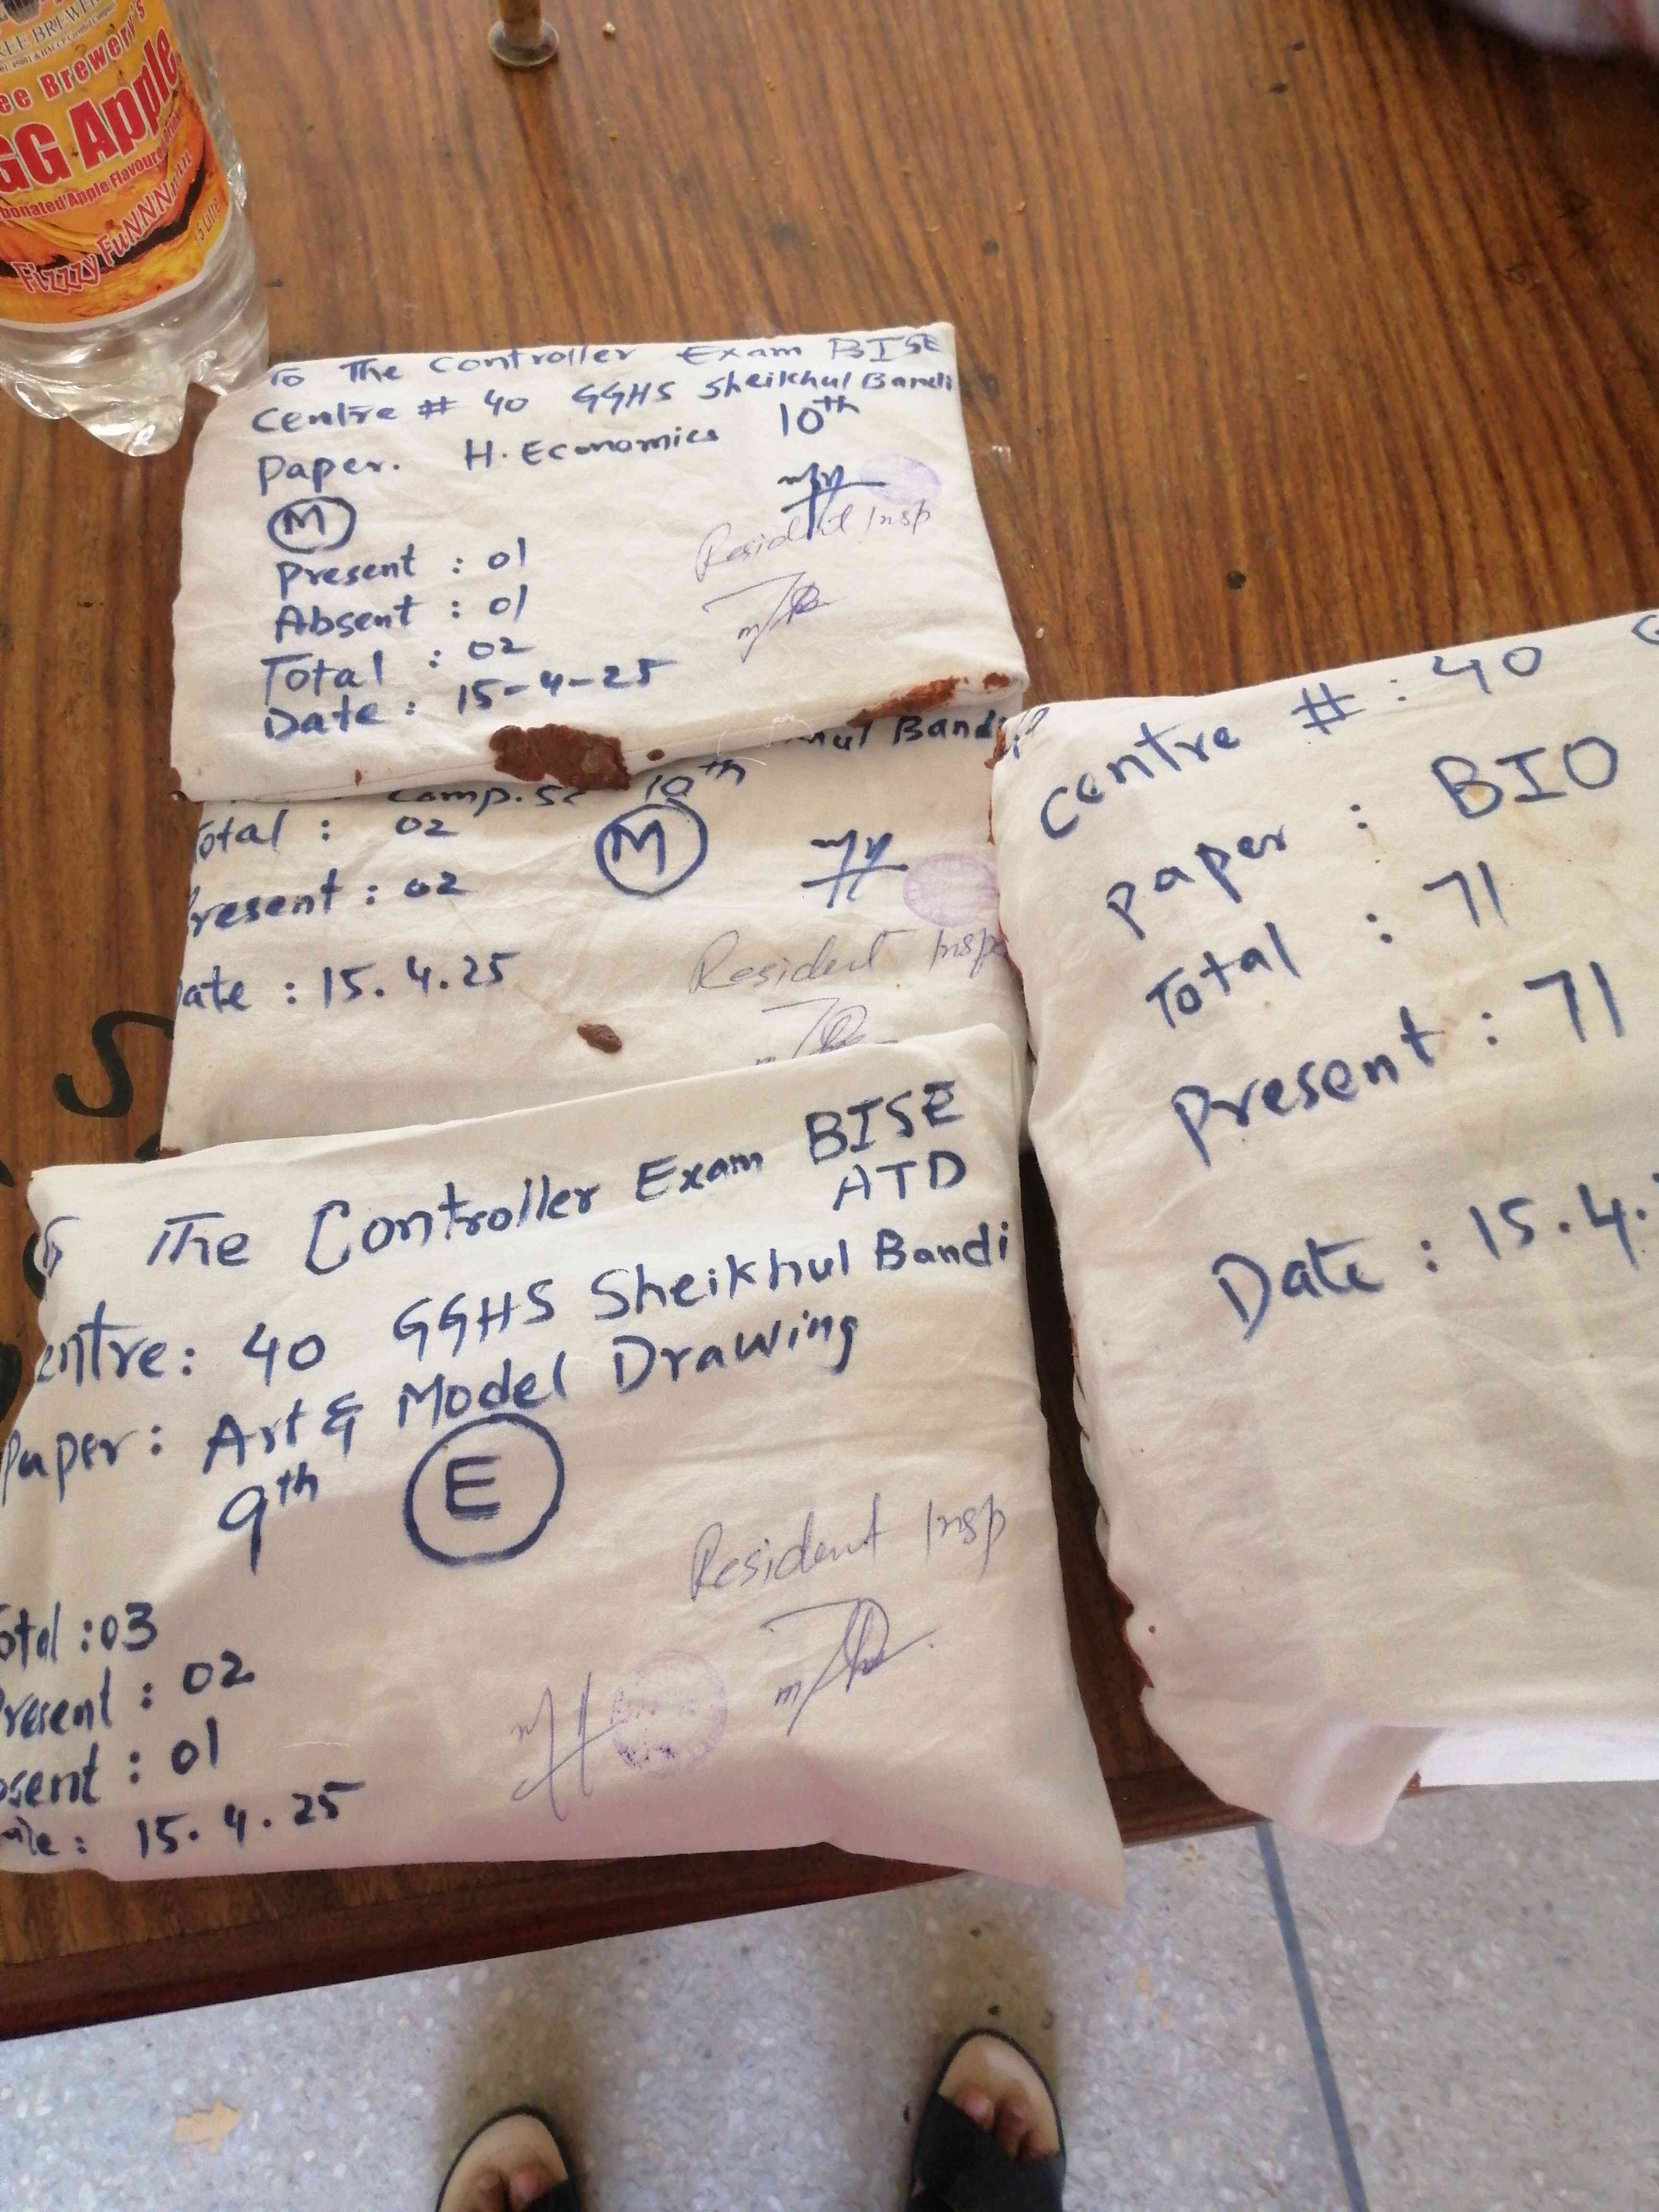 GG Apple
Fizzzy FuNNNnnn
To The Controller Exam BISE
Centre # 40 GGHS Sheikhul Bandi
Paper. H. Economics 10th
M
Present : 01
Absent : 01
Total : 02
Date : 15-4-25
Resident Insp
Bandi
Comp. Sc 10th
Total : 02
M
Present : 02
Date : 15.4.25
Resident Insp
To The Controller Exam BISE
ATD
Centre: 40 GGHS Sheikhul Bandi
Paper: Art & Model Drawing
9th E
Total : 03
Present : 02
Absent : 01
Date : 15.4.25
Resident Insp
Centre # : 40
Paper : BIO
Total : 71
Present : 71
Date : 15.4.